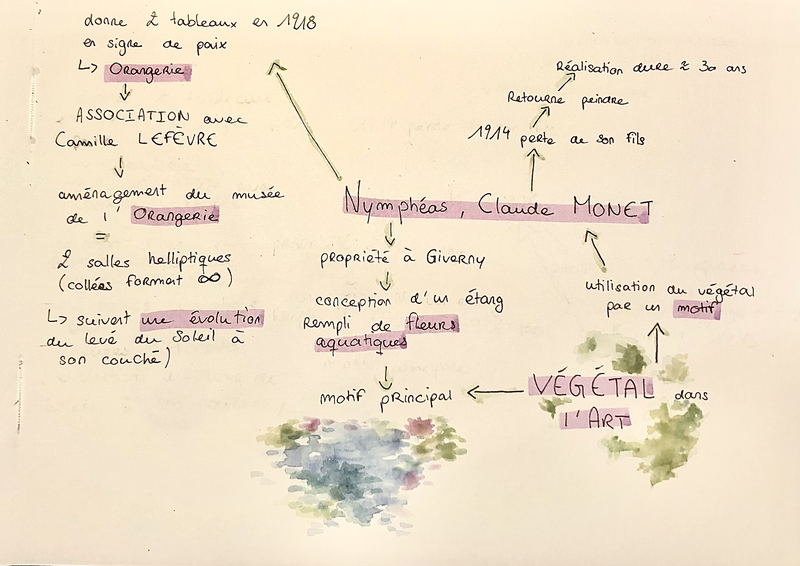 donne 2 tableaux en 1918
en signe de paix
↳ Orangerie
ASSOCIATION avec
Camille LEFÈVRE
aménagement du musée
de l' Orangerie
=
2 salles helliptiques
(collées formant ∞)
↳ suivent une évolution
du levé du Soleil à
son couché)
Réalisation dure ≈ 30 ans
Retourne peindre
1914 perte de son fils
Nymphéas, Claude MONET
propriété à Giverny
conception d'un étang
rempli de fleurs
aquatiques
motif principal
utilisation du végétal
par un motif
VÉGÉTAL dans
l'ART